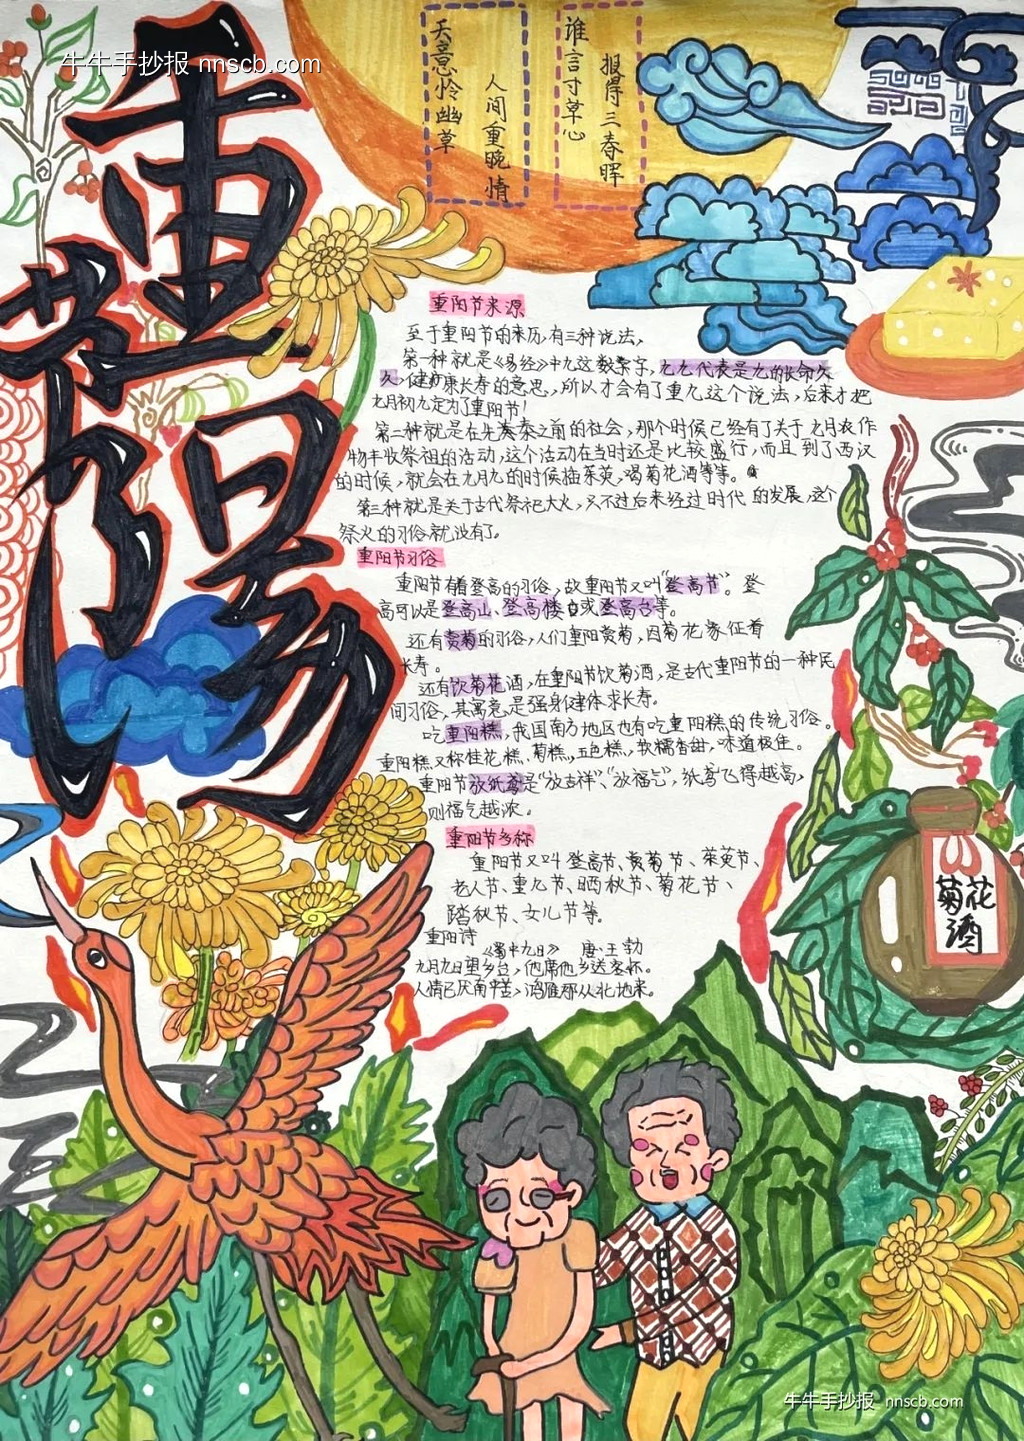 牛牛手抄报 nnscb.com
重陽
天意怜幽草
人间重晚情
谁言寸草心
报得三春晖
重阳节来源
至于重阳节的来历,有三种说法,
第一种就是《易经》中九这数字,九九代表是九的长命久
久,健康长寿的意思,所以才会有了重九这个说法,后来才把
九月初九定为了重阳节!
第二种就是在先秦之前的社会,那个时候已经有了关于九月农作
物丰收祭祖的活动,这个活动在当时还是比较盛行,而且到了西汉
的时候,就会在九月九的时候插茱萸,喝菊花酒等等。
第三种就是关于古代祭祀大火,只不过后来经过时代的发展,这个
祭火的习俗就没有了。
重阳节习俗
重阳节有着登高的习俗,故重阳节又叫“登高节”。登
高可以是登高山、登高楼或登高台等。
还有赏菊的习俗,人们重阳赏菊,因菊花象征着
长寿。
还有饮菊花酒,在重阳节饮菊酒,是古代重阳节的一种民
间习俗,其寓意是强身健体求长寿。
吃重阳糕,我国南方地区也有吃重阳糕的传统习俗。
重阳糕又称桂花糕、菊糕,五色糕,软糯香甜,味道极佳。
重阳节放纸鸢是“放吉祥”、“放福气”,纸鸢飞得越高,
则福气越浓。
重阳节名称
重阳节又叫登高节、赏菊节、茱萸节、
老人节、重九节、晒秋节、菊花节、
踏秋节、女儿节等。
重阳诗
《蜀中九日》 唐·王勃
九月九日望乡台,他席他乡送客杯。
人情已厌南中苦,鸿雁那从北地来。
菊花
酒
牛牛手抄报 nnscb.com